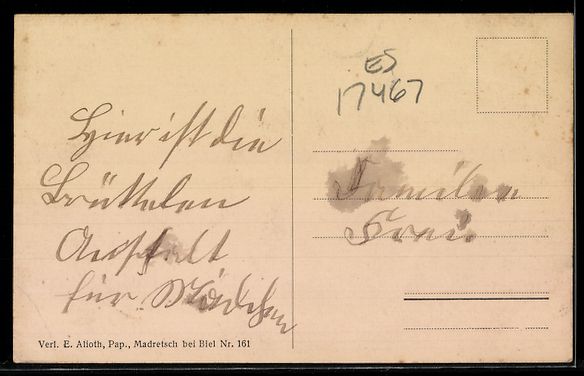 Hier ist die
Brüttelen
Anstalt
für Mädchen
Verl. E. Alioth, Pap., Madretsch bei Biel Nr. 161
ES
17467
Familien
Frei